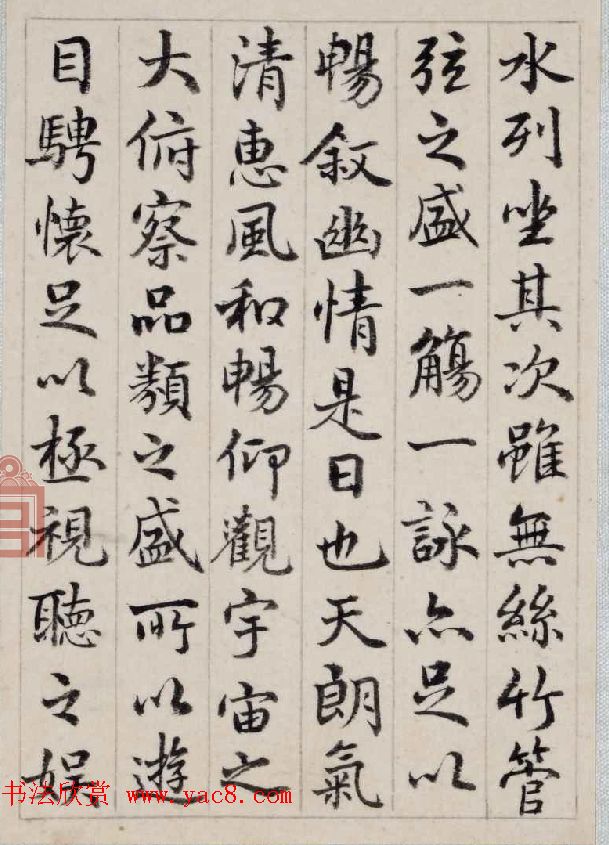 水列坐其次雖無絲竹管
弦之盛一觴一詠亦足以
暢敘幽情是日也天朗氣
清惠風和暢仰觀宇宙之
大俯察品類之盛所以遊
目騁懷足以極視聽之娛
书法欣赏 www.yac8.com